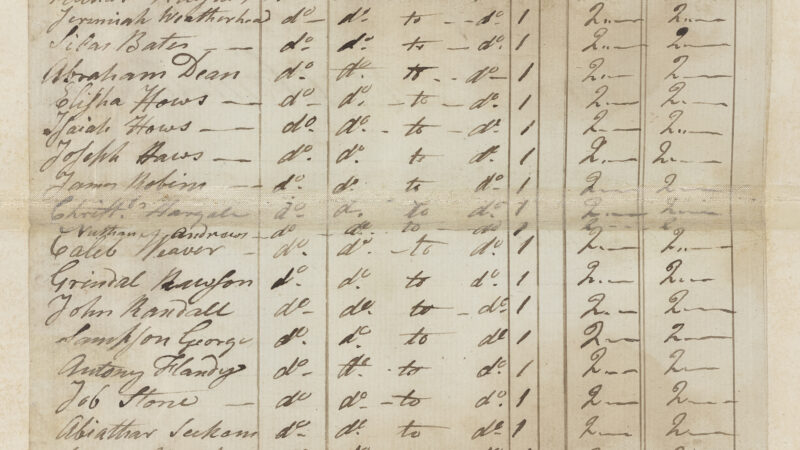 Jeremiah Weatherhead do do to do 1 2 2
Silas Bates do do to do 1 2 2
Abraham Dean do do to do 1 2 2
Elisha Hows do do to do 1 2 2
Isaiah Hows do do to do 1 2 2
Joseph Haws do do to do 1 2 2
James Robins do do to do 1 2 2
do do to do 1 2 2
Andrews do do to do 1 2 2
Caleb Weaver do do to do 1 2 2
Grindal Rawson do do to do 1 2 2
John Randall do do to do 1 2 2
Sampson George do do to do 1 2 2
Antony Handy do do to do 1 2 2
Job Stone do do to do 1 2 2
Abiathar do do to do 1 2 2